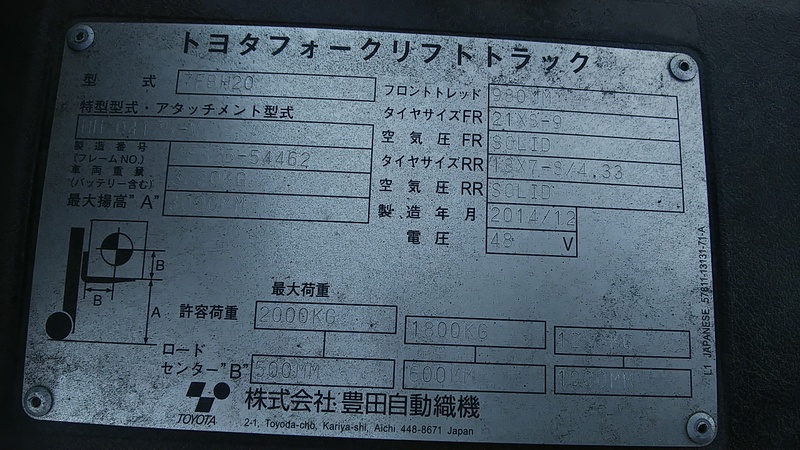 トヨタフォークリフトトラック
型式 7FBH20
特型型式・アタッチメント型式
製造番号
(フレームNO.) -54462
車両重量
(バッテリー含む) KG
最大揚高"A"
フロントトレッド 980MM
タイヤサイズFR 21X8-9
空気圧 FR SOLID
タイヤサイズRR 18X7-8/4.33
空気圧 RR SOLID
製造年月 2014/12
電圧 48 V
B
B
A
最大荷重
許容荷重 2000KG 1800KG
ロード
センター"B" 500MM 600MM
TOYOTA
株式会社 豊田自動織機
2-1, Toyoda-cho, Kariya-shi, Aichi 448-8671 Japan
L1 JAPANESE 57811-13131-71-A